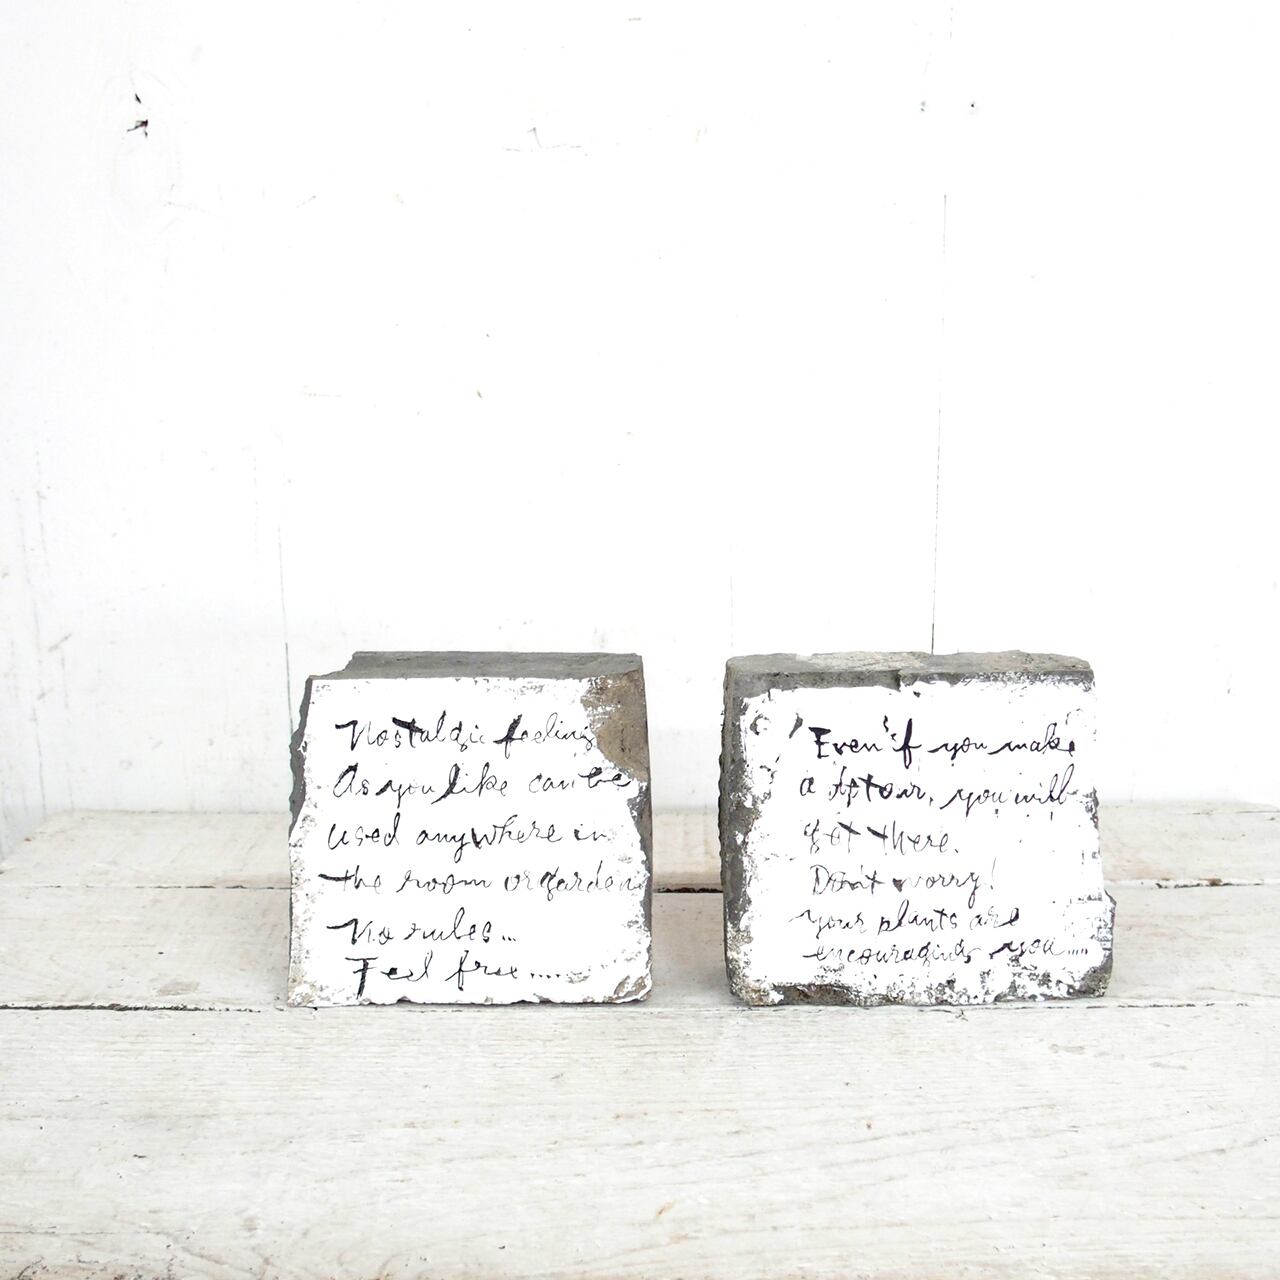 Nostalgic feeling
As you like can be
used anywhere in
the room or garden
No rules...
Feel free.....
Even if you make
a detour, you will
get there.
Don't worry!
your plants are
encouraging you.....